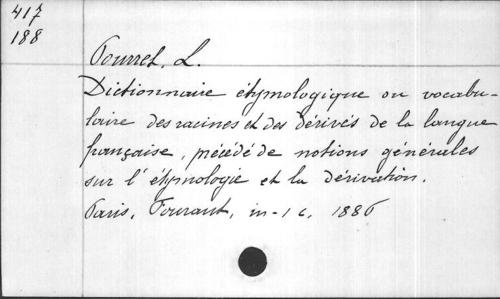 417
188
Pourret, L.
Dictionnaire étymologique ou vocabu-
laire des racines et des dérivés de la langue
française, précédé de notions générales
sur l'étymologie et la dérivation.
Paris, Fouraut, in-16. 1886